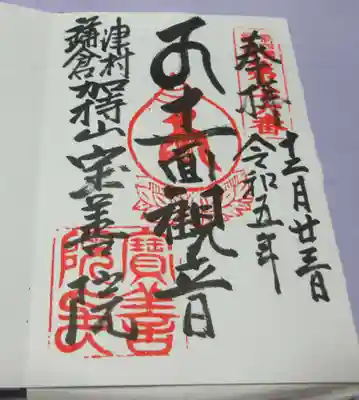 奉拝
令和五年
十二月廿三日
十一面觀音
鎌倉
津村
加持山宝善院
寶善
院